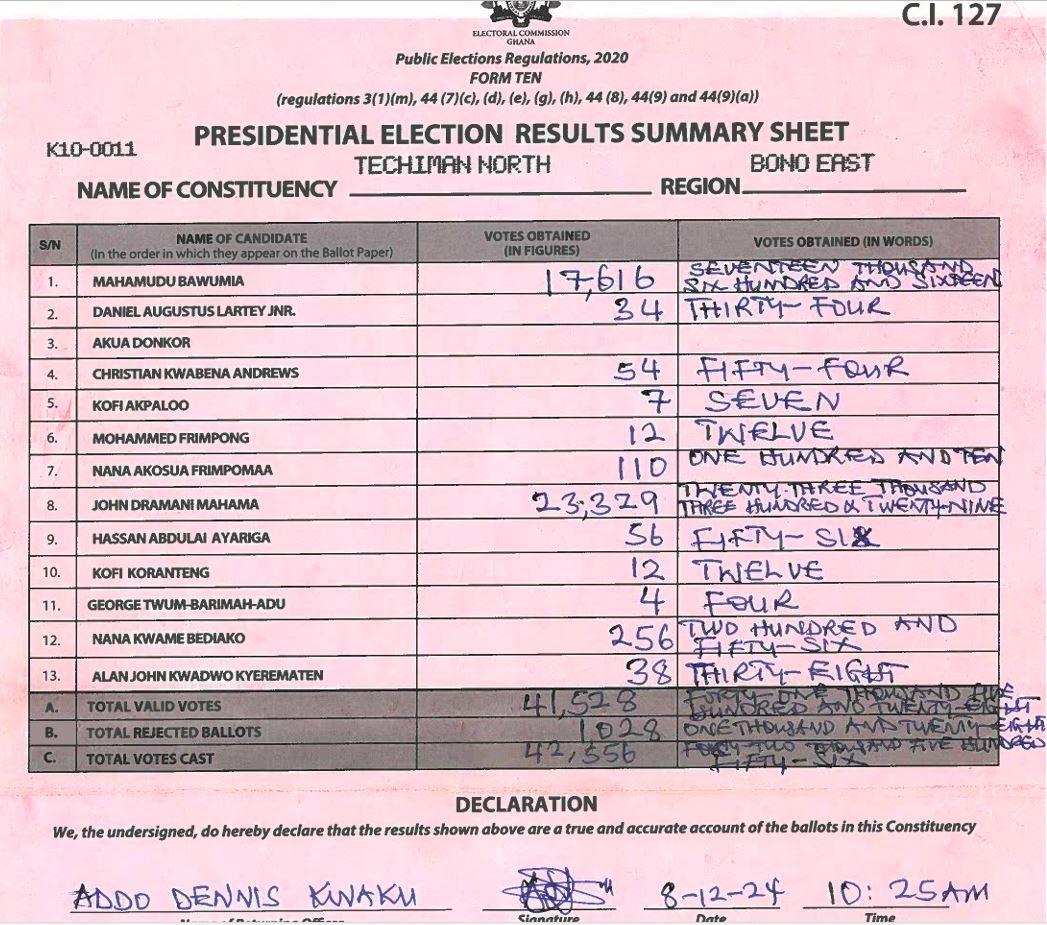 C.I. 127
ELECTORAL COMMISSION
GHANA
Public Elections Regulations, 2020
FORM TEN
(regulations 3(1)(m), 44 (7)(c), (d), (e), (g), (h), 44 (8), 44(9) and 44(9)(a))
PRESIDENTIAL ELECTION RESULTS SUMMARY SHEET
K10-0011
TECHIMAN NORTH BONO EAST
NAME OF CONSTITUENCY REGION
S/N NAME OF CANDIDATE (In the order in which they appear on the Ballot Paper) VOTES OBTAINED (IN FIGURES) VOTES OBTAINED (IN WORDS)
1. MAHAMUDU BAWUMIA 17,616 SEVENTEEN THOUSAND SIX HUNDRED AND SIXTEEN
2. DANIEL AUGUSTUS LARTEY JNR. 34 THIRTY-FOUR
3. AKUA DONKOR
4. CHRISTIAN KWABENA ANDREWS 54 FIFTY-FOUR
5. KOFI AKPALOO 7 SEVEN
6. MOHAMMED FRIMPONG 12 TWELVE
7. NANA AKOSUA FRIMPOMAA 110 ONE HUNDRED AND TEN
8. JOHN DRAMANI MAHAMA 23,329 TWENTY-THREE THOUSAND THREE HUNDRED & TWENTY-NINE
9. HASSAN ABDULAI AYARIGA 56 FIFTY-SIX
10. KOFI KORANTENG 12 TWELVE
11. GEORGE TWUM-BARIMAH-ADU 4 FOUR
12. NANA KWAME BEDIAKO 256 TWO HUNDRED AND FIFTY-SIX
13. ALAN JOHN KWADWO KYEREMATEN 38 THIRTY-EIGHT
A. TOTAL VALID VOTES 41,528 FORTY-ONE THOUSAND FIVE HUNDRED AND TWENTY-EIGHT
B. TOTAL REJECTED BALLOTS 1,028 ONE THOUSAND AND TWENTY-EIGHT
C. TOTAL VOTES CAST 42,556 FORTY TWO THOUSAND FIVE HUNDRED FIFTY-SIX
DECLARATION
We, the undersigned, do hereby declare that the results shown above are a true and accurate account of the ballots in this Constituency
ADDO DENNIS KWAKU 8-12-24 10:25AM
Name of Returning Officer Signature Date Time